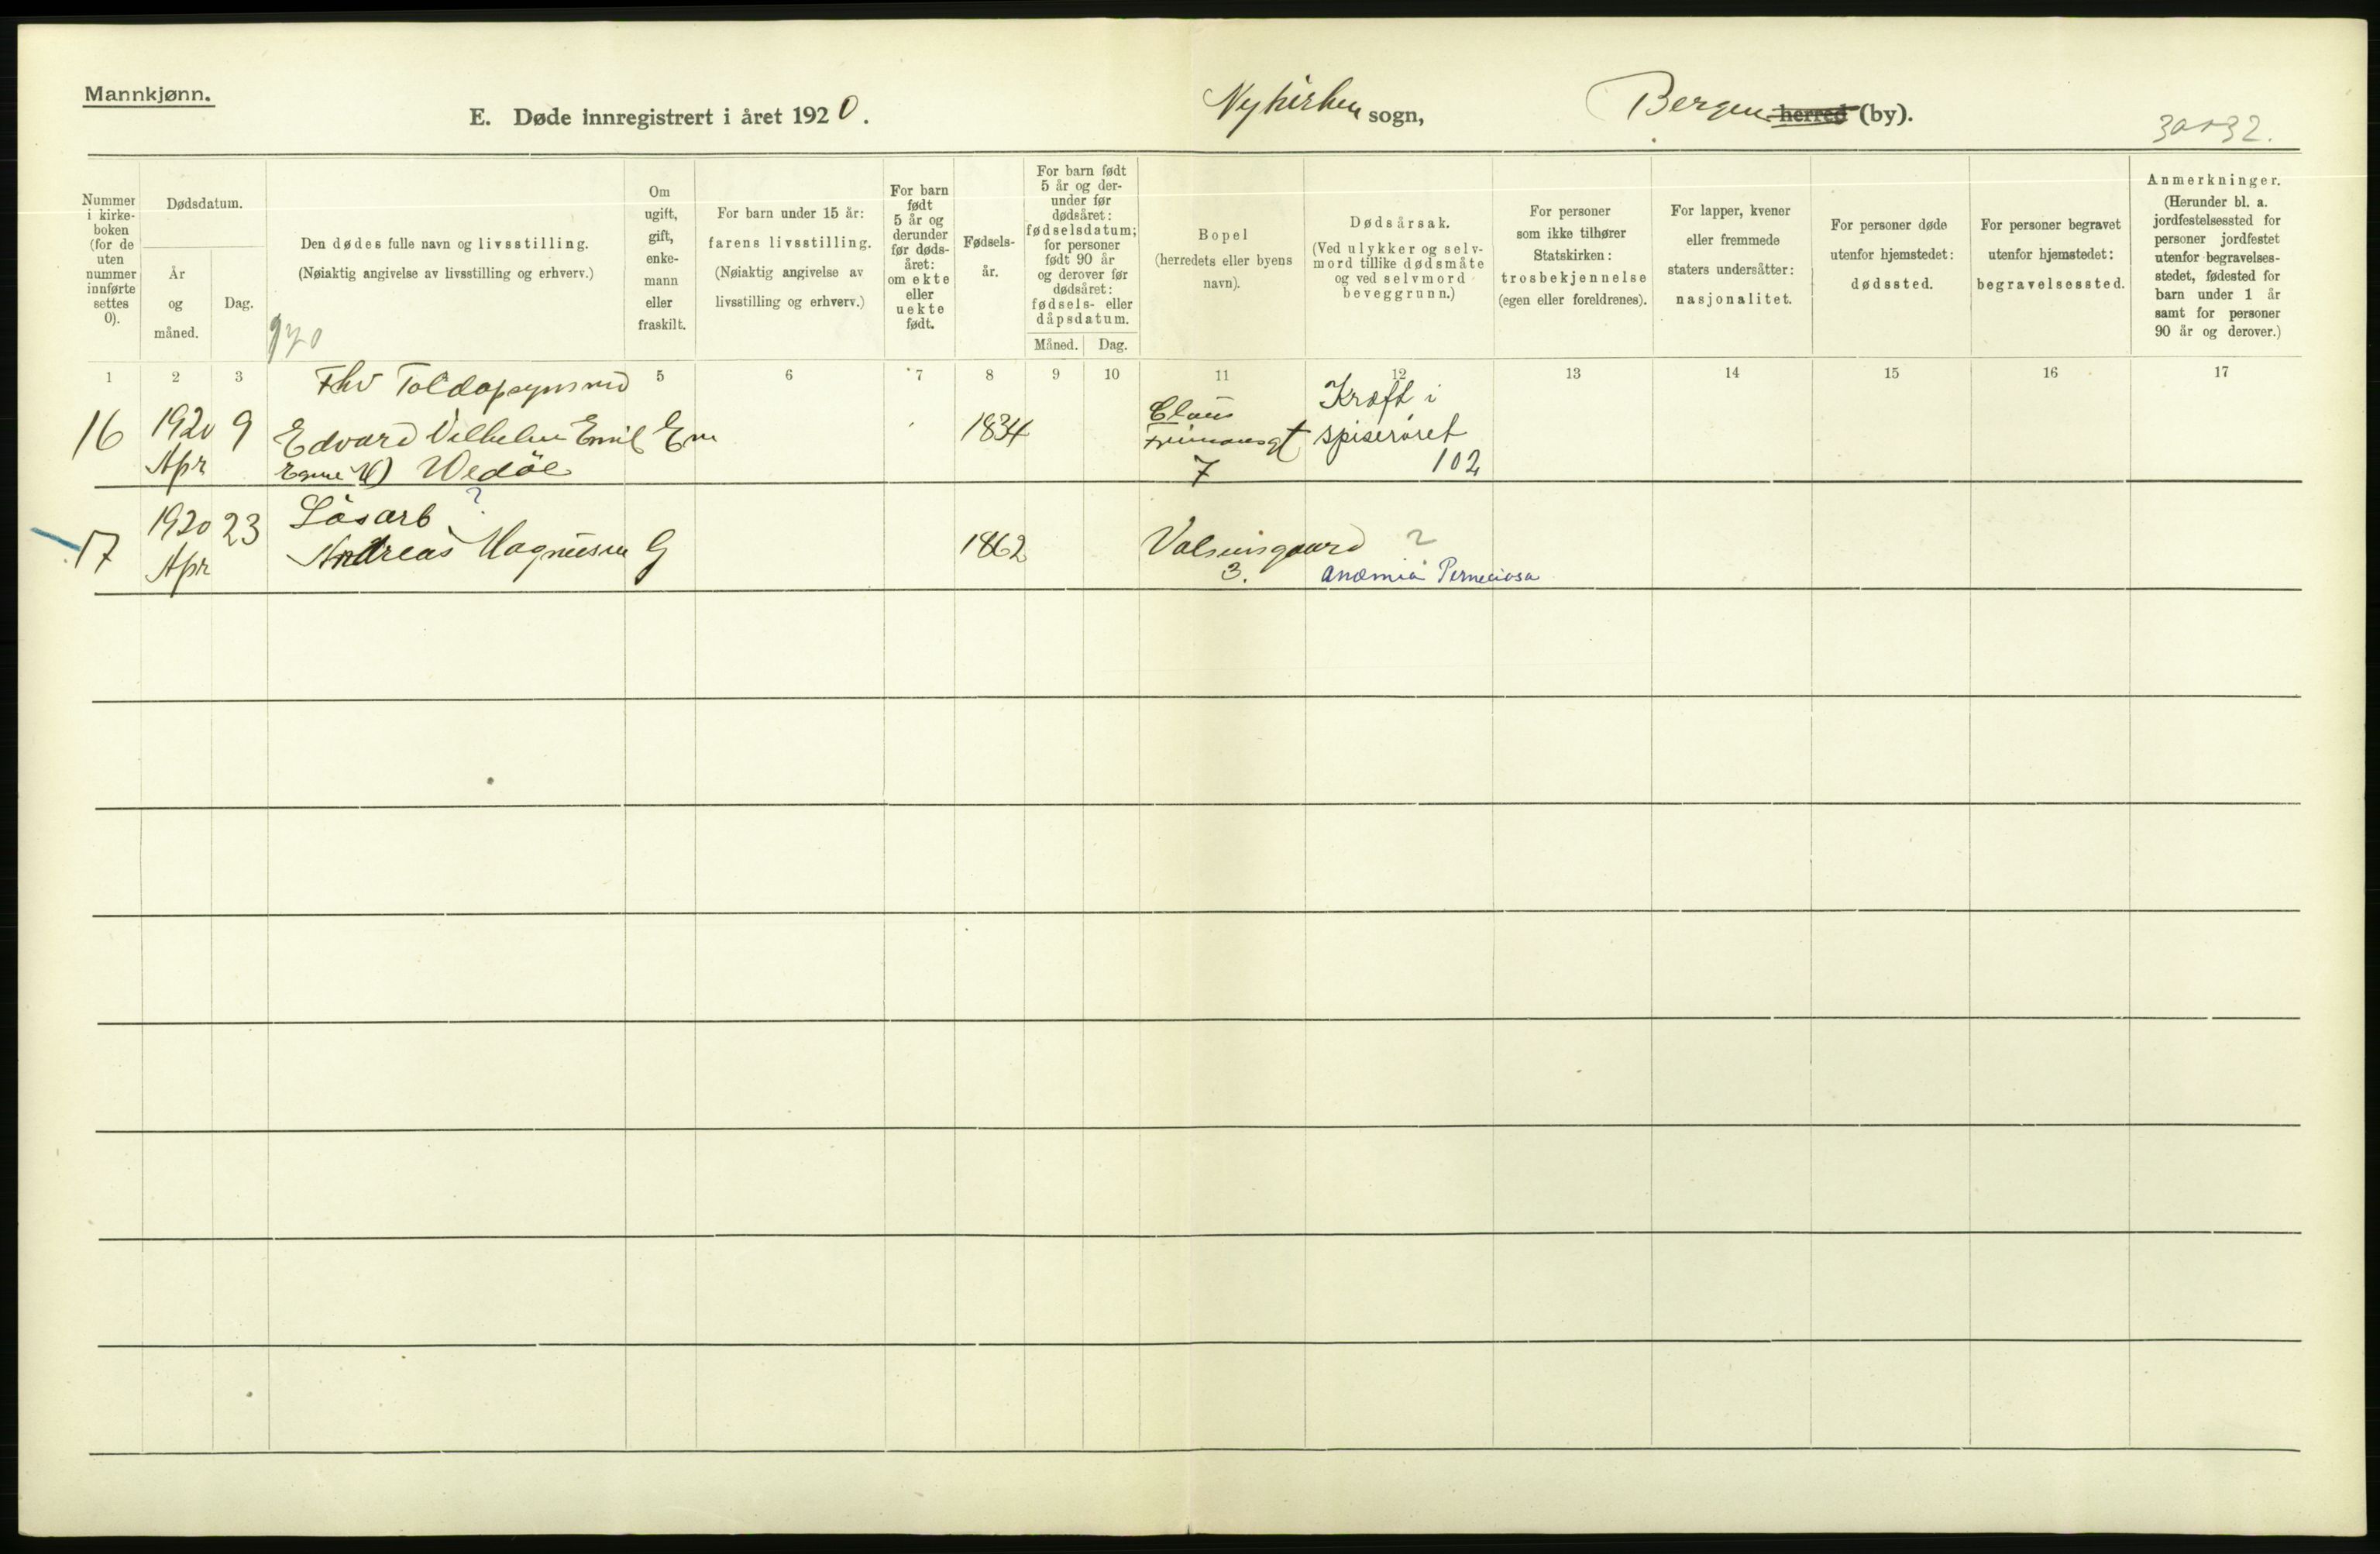 Mannkjønn.
E. Døde innregistrert i året 1920.
Nykirken sogn,
Bergen herred (by).
30+32.
Nummer i kirke-boken (for de uten nummer innførte settes 0).
Dødsdatum.
År og måned.
Dag.
Den dødes fulle navn og livsstilling.
(Nøiaktig angivelse av livsstilling og erhverv.)
Om ugift, gift, enke-mann eller fraskilt.
For barn under 15 år:
farens livsstilling.
(Nøiaktig angivelse av
livsstilling og erhverv.)
For barn født 5 år og derunder før døds-året: om ekte eller uekte født.
Fødsels-år.
For barn født 5 år og der-under før dødsåret: fødselsdatum; for personer født 90 år og derover før dødsåret: fødsels- eller dåpsdatum.
Måned.
Dag.
Bopel
(herredets eller byens
navn).
Dødsårsak.
(Ved ulykker og selv-
mord tillike dødsmåte
og ved selvmord
beveggrunn.)
For personer
som ikke tilhører
Statskirken:
trosbekjennelse
(egen eller foreldrenes).
For lapper, kvener
eller fremmede
staters undersåtter:
nasjonalitet.
For personer døde
utenfor hjemstedet:
dødssted.
For personer begravet
utenfor hjemstedet:
begravelsessted.
Anmerkninger.
(Herunder bl. a.
jordfestelsessted for
personer jordfestet
utenfor begravelses-
stedet, fødested for
barn under 1 år
samt for personer
90 år og derover.)
1 2 3 5 6 7 8 9 10 11 12 13 14 15 16 17
Fhv Toldopsynsmd
16 1920 Apr 9 Edvard Vilhelm Emil Em 1834
Wedöe
Claus
Frimansgt
7
Kræft i
spiseröret
102
Lösarb ?
17 1920 Apr 23 Andreas Magnusen G 1862
Valsuisgaard
3.
?
Anæmia Perneciosa